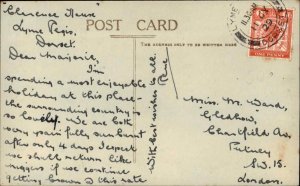 Clarence House
Lyme Regis,
Dorset.
POST CARD
THE ADDRESS ONLY TO BE WRITTEN HERE
Dear Marjorie,
I'm
spending a most enjoyable
holiday at this place -
the surrounding country is
so lovely. We are both
very painfully sunburnt
after only 4 days I expect
we shall return like
niggers if we continue
getting brown at this rate
With best wishes to all.
Miss. M. Ward,
Gledhow,
Chartfield Av.
Putney
S.W.15.
London.
LYME
29
ONE PENNY